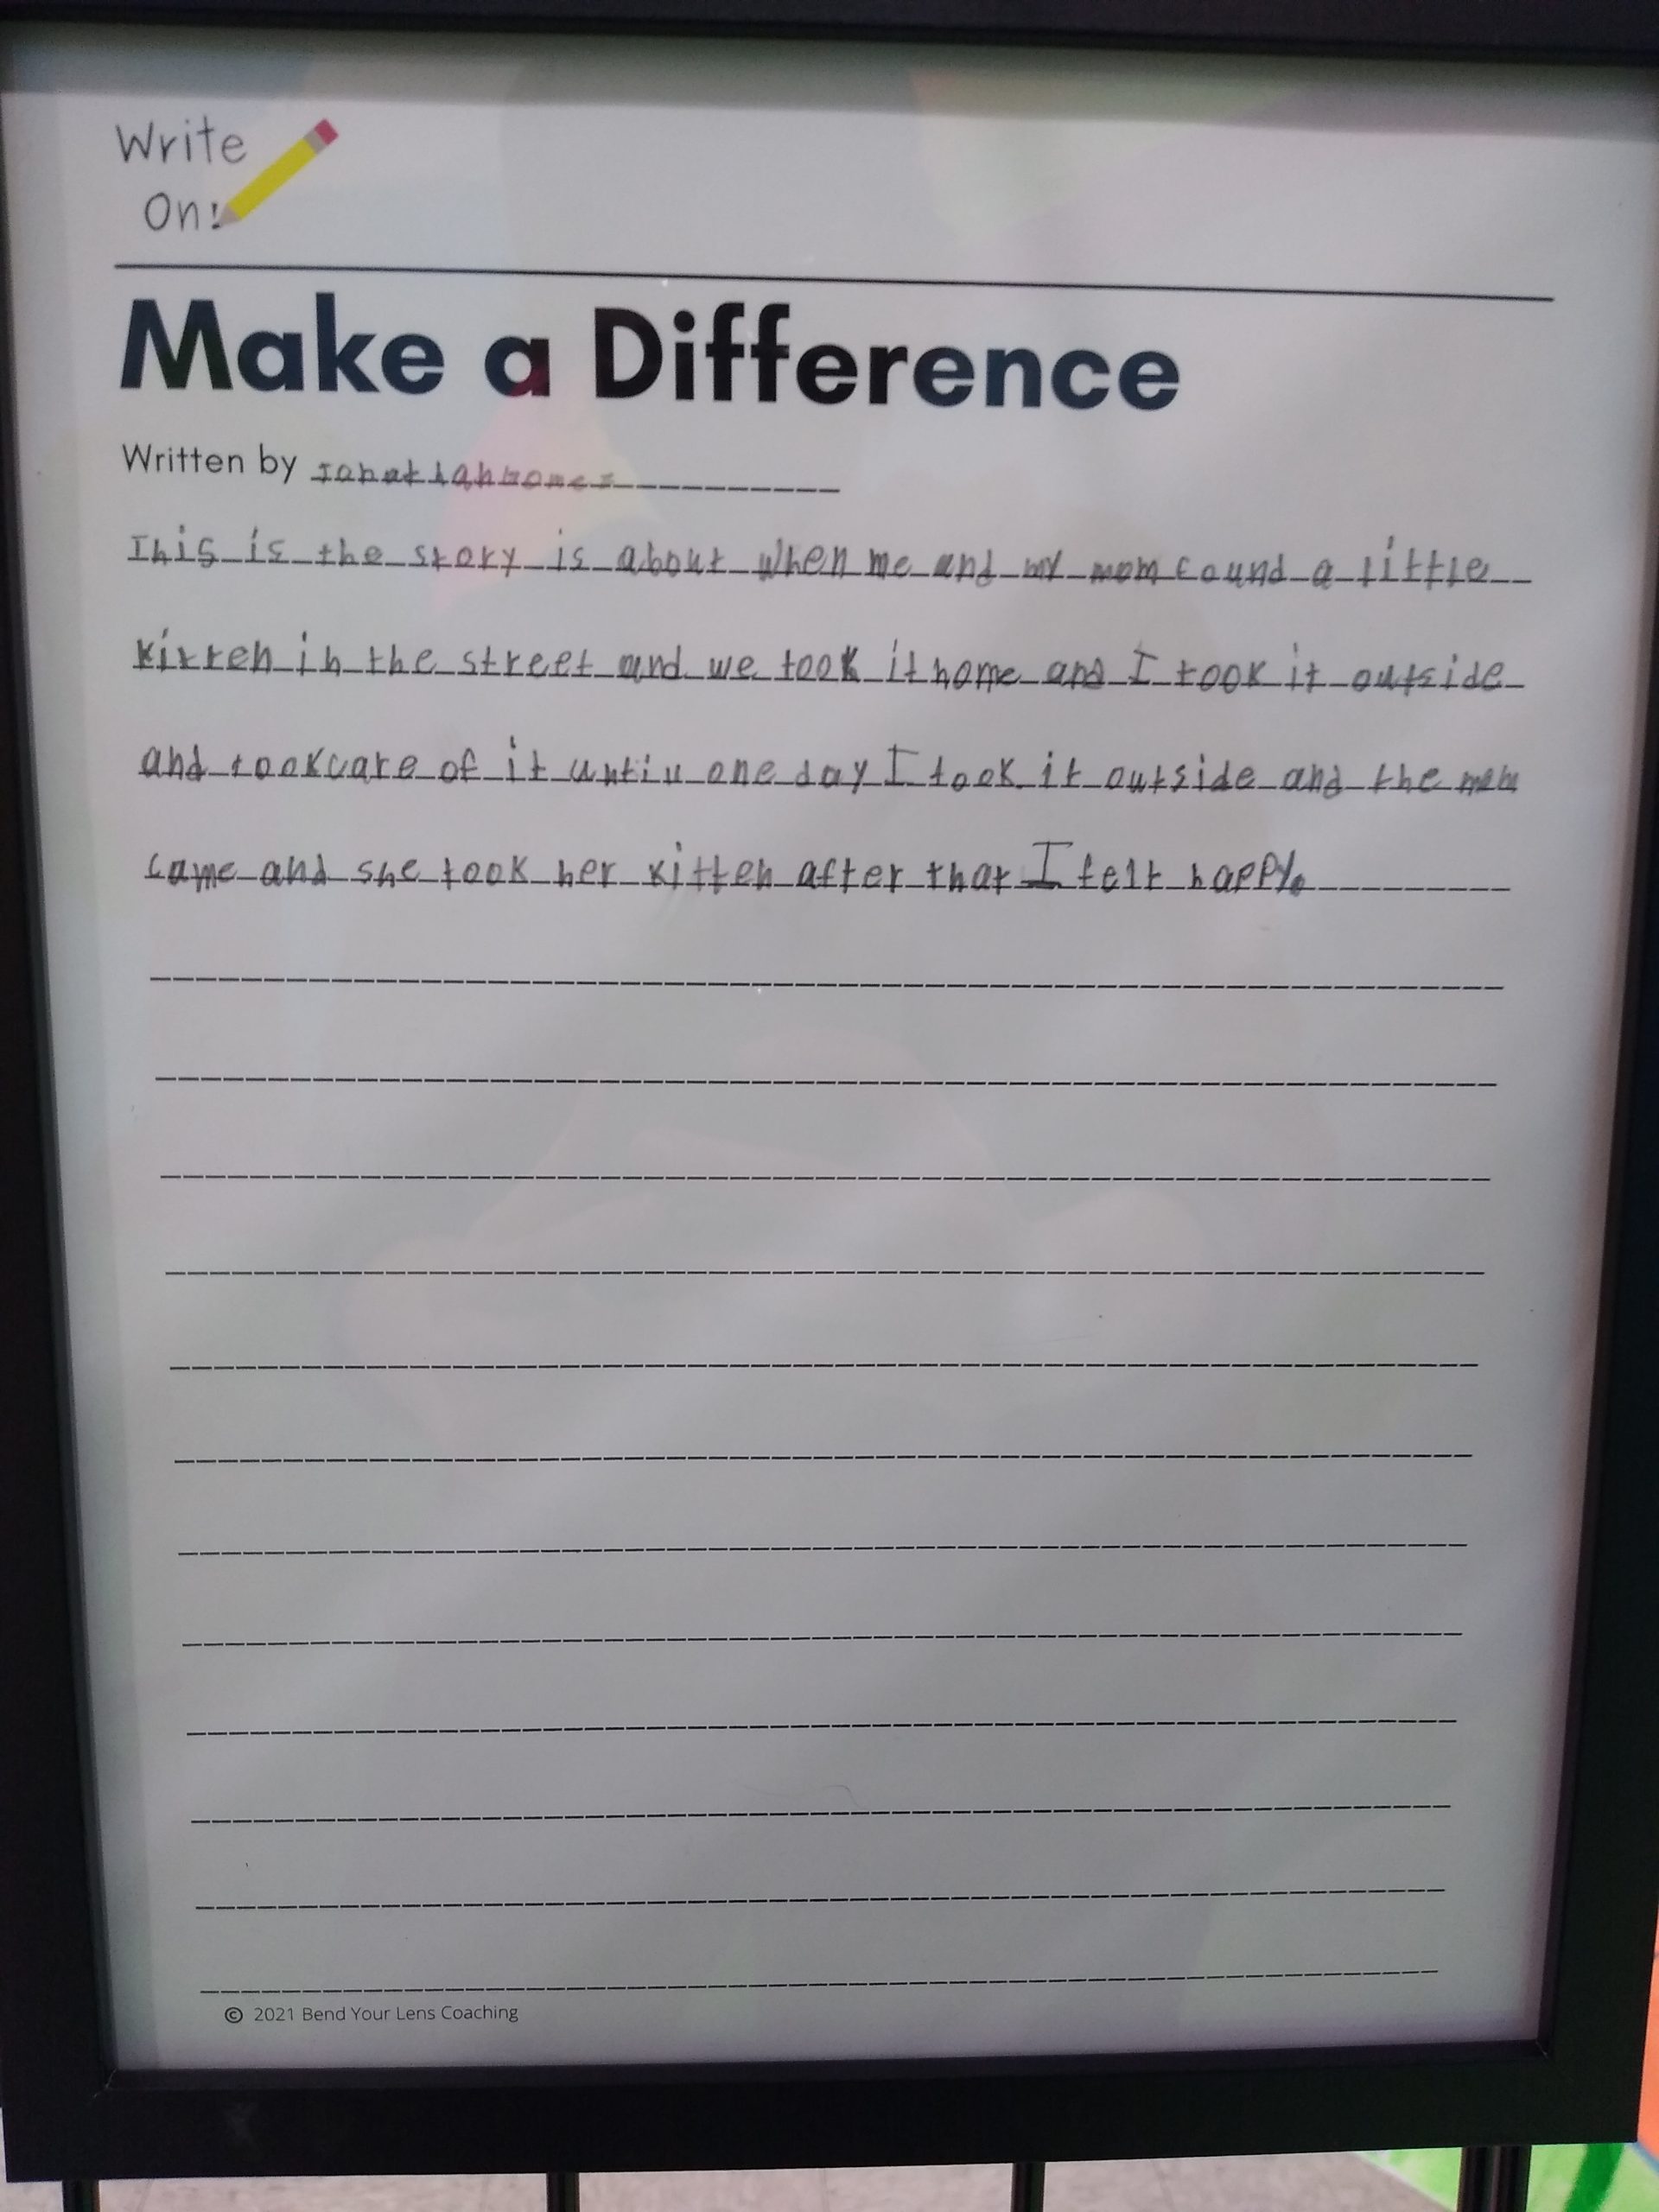 Write
On!
Make a Difference
Written by
This is the story is about when me and my mom found a little
kitten in the street and we took it home and I took it outside
and took care of it until one day I took it outside and the mom
came and she took her kitten after that I felt happy.
© 2021 Bend Your Lens Coaching